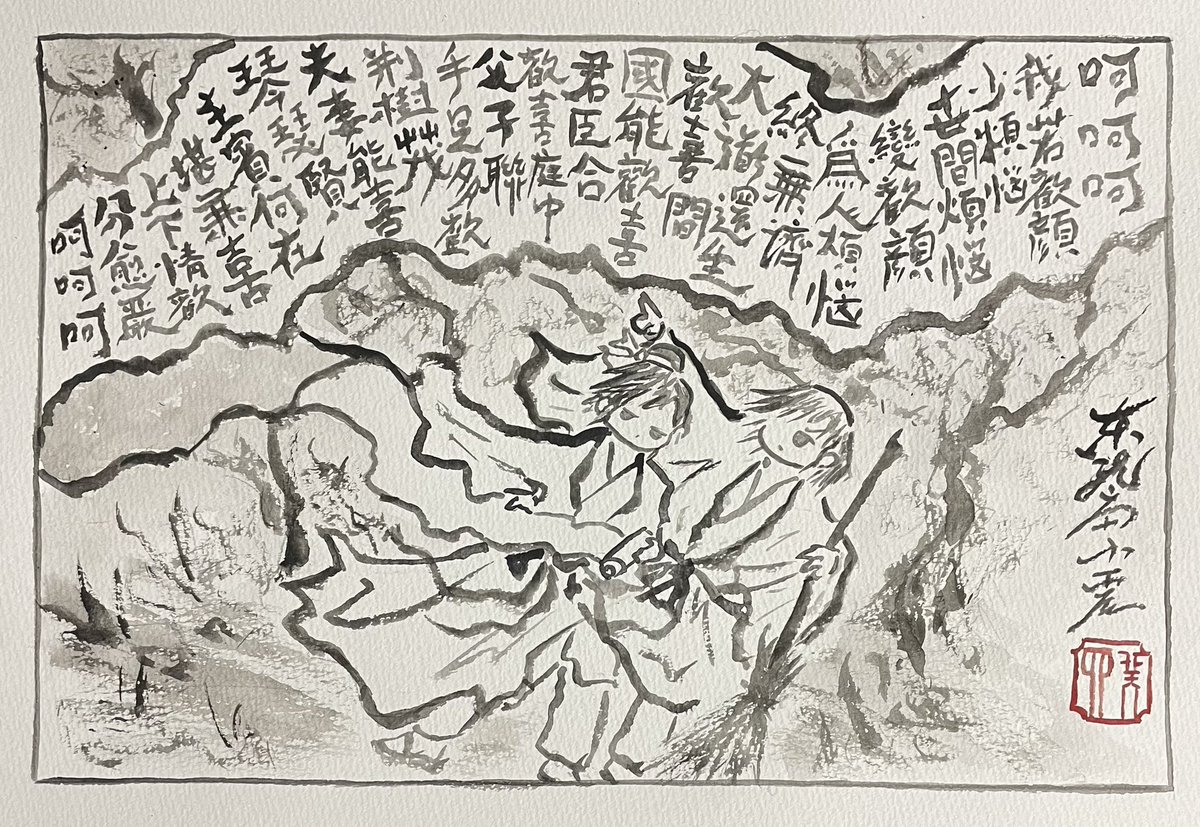 呵呵呵
我若歡顔
少煩惱
世間煩惱
變歡顔
爲人煩惱
終無濟
大還生
歡喜間
國能歡喜
君臣合
歡喜庭中
父子聯
手足多歡
荆樹茂
夫妻能喜
琴瑟賢
主賓何在
堪無喜
上下情歡
分愈嚴
呵呵呵
癸卯